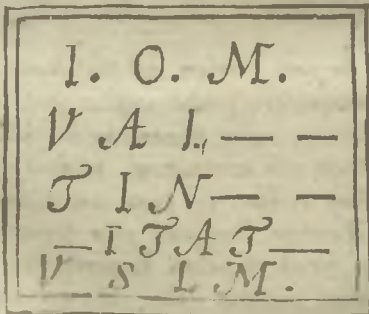 I. O. M.
V A L — —
T I N — —
— I T A T —
V S L M.